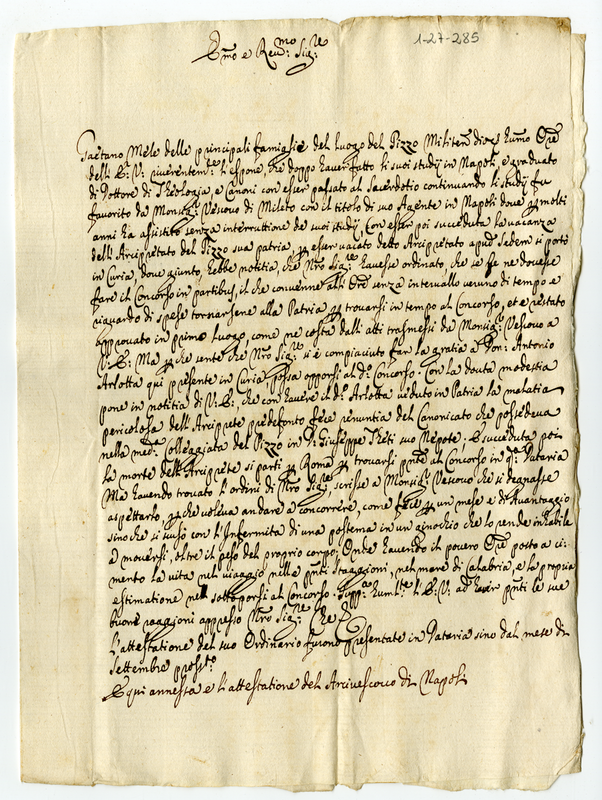 1-27-285
Em̃o e Reu:mo Sig:re
Gaetano Mele delle principali famiglie del luogo del Pizzo Militen̄ dioc: humo Ore
dell' E: V: riuerentemte l'espone, che doppo hauer fatto li suoi studij in Napoli, e graduato
di Dottore di Theologia, e Canoni con esser passato al Sacerdotio continuando li studij fu
fauorito da Monsigr Vescouo di Mileto con il titolo di suo Agente in Napoli doue p molti
anni ha assistito senza interruttione de' suoi studij. Con esser poi succeduta la vacanza
dell' Arcipretato del Pizzo sua patria, p esser vacato detto Arcipretato apud Sedem si portò
in Curia, doue giunto hebbe notitia, che Nro Sigre hauesse ordinato, che se ne douesse
fare il Concorso in partibus, il che conuenne all' Ore senza interuallo veruno di tempo e
riguardo di spese tornarsene alla Patria p trouarsi in tempo al Concorso, et è restato
approuato in primo luogo, come ne costa dalli atti trasmessi da Monsigr Vescouo a
V: E: Ma p che sente che Nro Sigre si è compiaciuto far la gratia a Don: Antonio
Arlotta qui presente in Curia possa opporsi al do Concorso. Con la douta modestia
pone in notitia di V: E: che con hauere il do Arlotta veduto in Patria la malatia
pericolosa dell' Arciprete predefonto fece renuntia del Canonicato che possedeua
nella medma Colleggiata del Pizzo in Do Giuseppe Theti suo Nepote: E succeduta poi
la morte dell' Arciprete si partì p Roma p trouarsi pnte al Concorso in qta Dataria
Ma hauendo trouato l'ordini di Nro Sigre, scrisse a Monsigr Vescouo che si degnasse
aspettarlo, p che voleua andare a concorrere, come fece p un mese e di auantaggio
sino che si scusò con l'Infermità di una postema in un ginocchio che lo rende inhabile
à mouersi, oltre il peso del proprio corpo; Onde hauendo il pouero Ore posto a ci-
mento la vita nel viaggio nelle pnti staggioni, nel mare di Calabria, e la propria
estimatione nel sottoporsi al Concorso. Suppca humlte l'E: V: ad hauer pnti le sue
buone raggioni appresso Nro Sigre Che &
L'attestatione del suo Ordinario furono presentate in Dataria sino dal mese di
Settembre prossto
E qui annessa e l'attestatione del Arciuescouo di Napoli